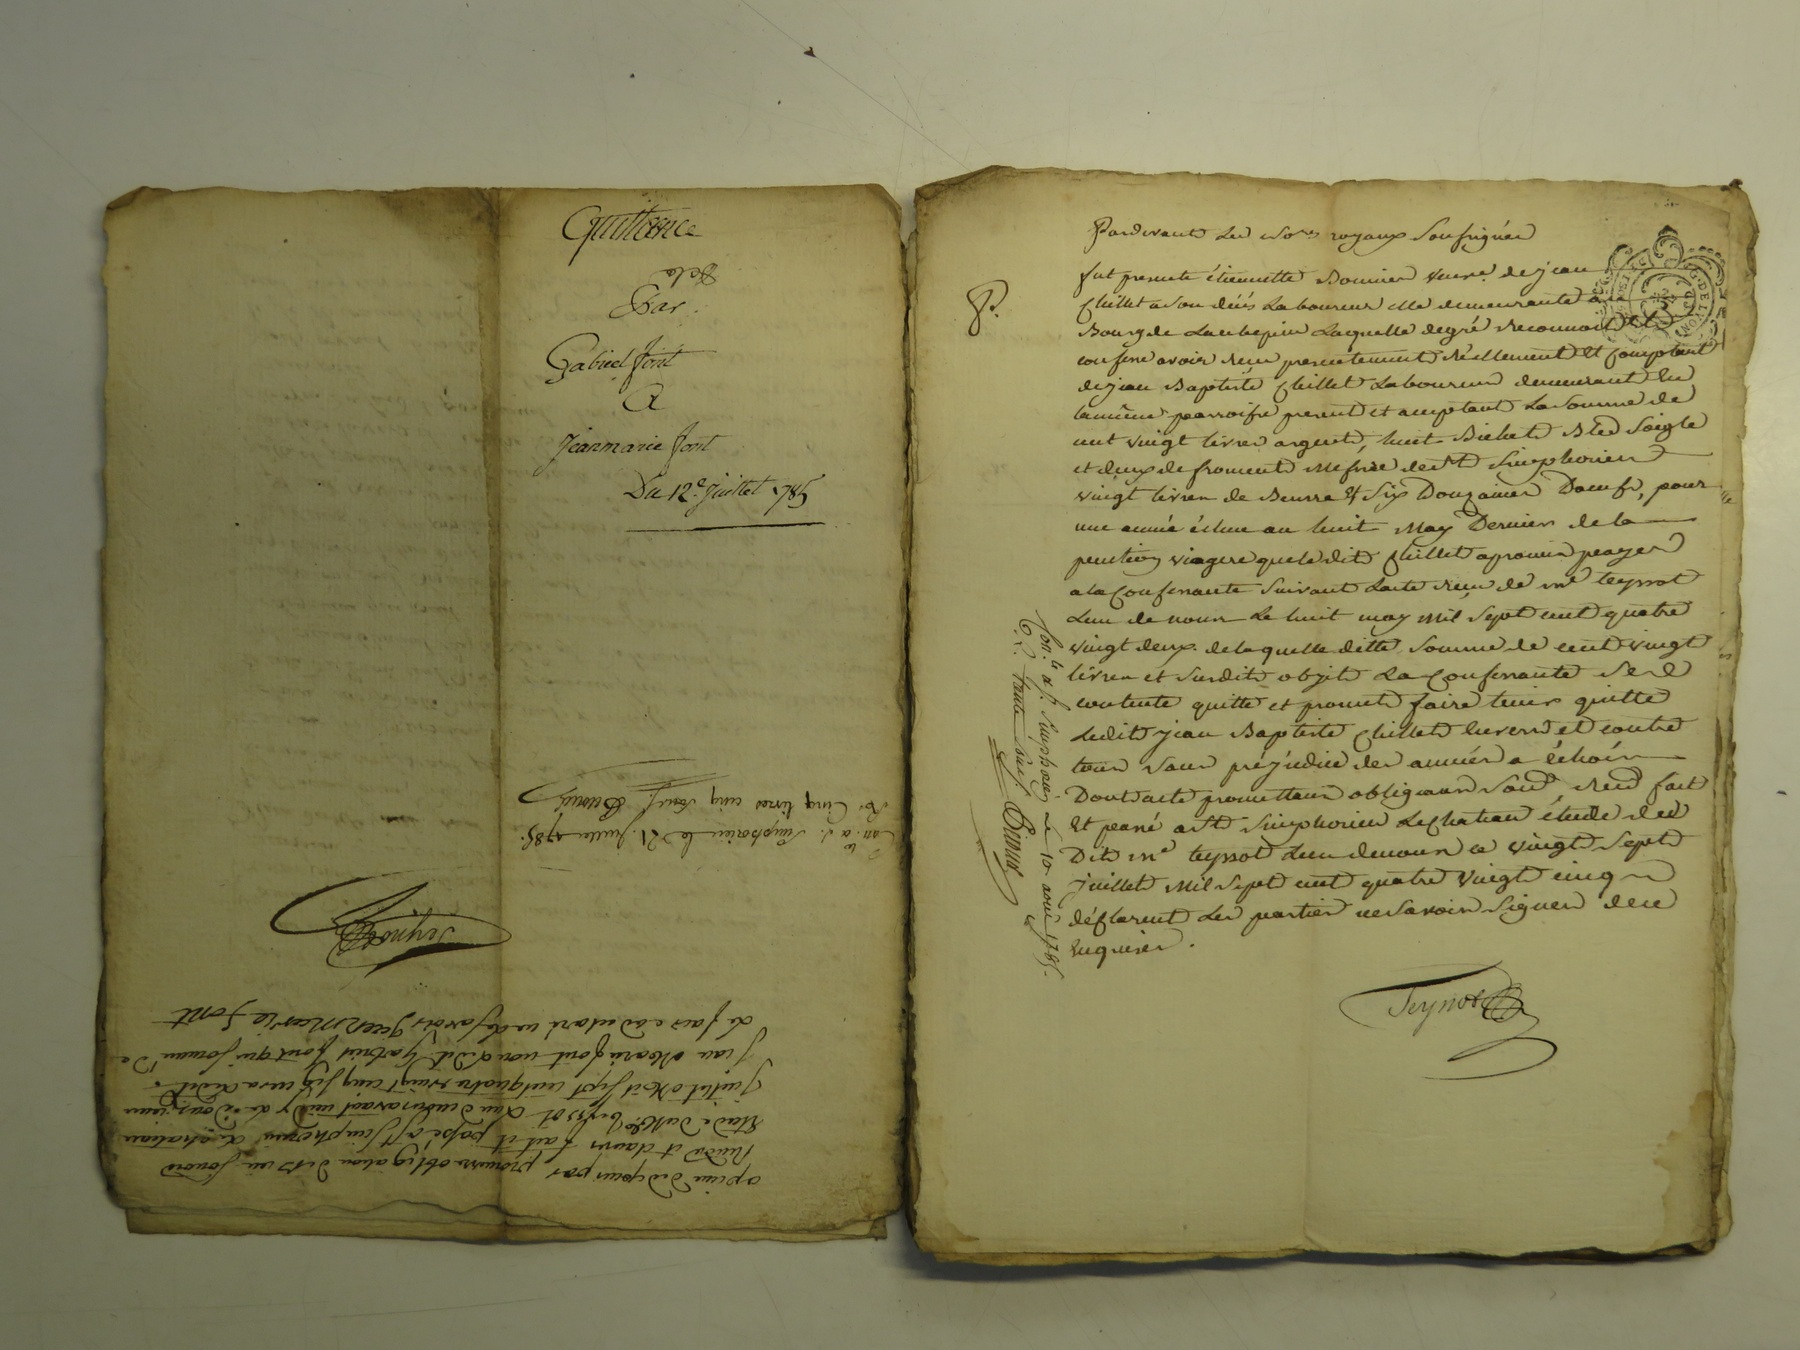 Quittance
De la
Par
Gabriel font
A
Jeanmarie font
Du 12e Juillet 1785
Con. à St. Simphorien le 21 Juillet 1785.
R. Cinq livres cinq sous
Teyssot
a peine de depens par promesse obligation de biens
et clauses fait et passé a St Simphorien le chateau
étude du Me teyssot L'un avant midy le Douzieme
Juillet Mil sept cent quatre vingt cinq signé
Jean Marie font non ledit Gabriel font qui
de faire Jeanmarie font
P.
Pardevant les Nores royaux Soussignés
fut presente étiennette Bonnier veuve de jean
Chillet a son décés Laboureur elle demeurante au
Bourg de Laubepin Laquelle de gré Reconnoit et
confesse avoir reçu presentement réellement et Comptant
de jean Baptiste Chillet Laboureur demeurant en
la même parroisse present et acceptant La Somme de
cent vingt livres argent, huit Bichets Bled Soigle
et deux de froment Mesure de St Simphorien
vingt livres de Beurre & Six Douzaines D'oeufs, pour
une année échue au huit May Dernier de la
pention viagere que ledit Chillet a promis payer
a la Confessante Suivant L'acte reçu de me teyssot
L'un de nous Le huit may Mil Sept cent quatre
vingt deux. de laquelle ditte Somme de cent vingt
livres et Susdits objets La Confessante Se
contente quitte et promet faire tenir quitte
Ledit jean Baptiste Chillet envers et contre
tous sans préjudice des années a échoir
Dont acte promettans obligeans Soumd Rend fait
Et passé a St Simphorien Le Chateau étude du
Dit me teyssot L'un de nous ce vingt Sept
juillet Mil Sept cent quatre vingt cinq
déclarent Les parties ne Savoir Signer de ce
enquises.
Teyssot
Con. lé a St. Simphorien Le 10 aout 1785.
R. trente sols